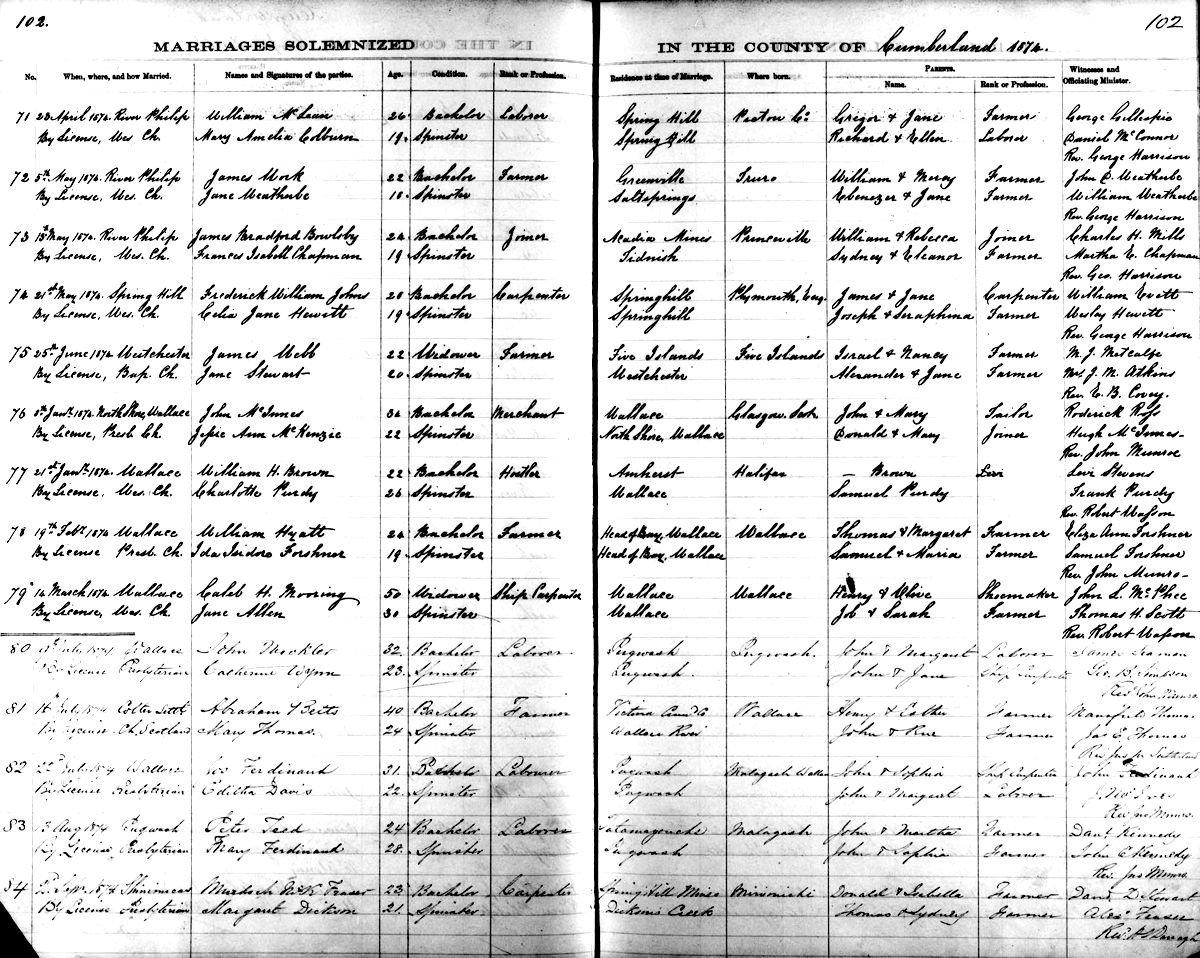 102.
102
MARRIAGES SOLEMNIZED IN THE COUNTY OF Cumberland 1874.
No. When, where, and how Married. Names and Signatures of the parties. Age. Condition. Rank or Profession. Residence at time of Marriage. Where born. PARENTS. Name. Rank or Profession. Witnesses and Officiating Minister.
71 28 April 1874 River Philip William McLean 26 Bachelor Laborer Spring Hill Pictou Co. Gregor & Jane Farmer George Gillespie
By License, Wes. Ch. Mary Amelia Colburn 19 Spinster Spring Hill Richard & Ellen Laborer Daniel McConnor
Rev. George Harrison
72 5th May 1874. River Philip James Mork 22 Bachelor Farmer Greenville Truro William & Mercy Farmer John C. Weatherbe
By License, Wes. Ch. Jane Weatherbe 18 Spinster Saltsprings Ebenezer & Jane Farmer William Weatherbe
Rev. George Harrison
73 18th May 1874. River Philip James Bradford Bowlsby 24 Bachelor Joiner Acadia Mines Princeville William & Rebecca Joiner Charles H. Mills
By License, Wes. Ch. Frances Isabell Chapman 19 Spinster Tidnish Sydney & Eleanor Farmer Martha E. Chapman
Rev. Geo. Harrison
74 21st May 1874. Spring Hill Frederick William Johns 20 Bachelor Carpenter Springhill Plymouth, Eng. James & Jane Carpenter William Evitt
By License, Wes. Ch. Celia Jane Hewitt 19 Spinster Springhill Joseph & Seraphina Farmer Wesley Hewitt
Rev. George Harrison
75 25th June 1874 Westchester James Webb 22 Widower Farmer Five Islands Five Islands Israel & Nancy Farmer M. J. Metcalfe
By License, Bap. Ch. Jane Stewart 20 Spinster Westchester Alexander & Jane Farmer J. M. Atkins
Rev. E. B. Covey.
76 8th Jany. 1874. North Shore, Wallace John McInnes 34 Bachelor Merchant Wallace Glasgow John & Mary Tailor Roderick Ross
By License, Presb Ch. Jessie Ann McKenzie 22 Spinster North Shore, Wallace Donald & Mary Joiner Hugh McInnes
Rev. John Munroe
77 21st Jany. 1874. Wallace William H. Brown 22 Bachelor Hostler Amherst Halifax — Brown Levi Levi Stevens
By License, Wes. Ch. Charlotte Purdy 26 Spinster Wallace Samuel Purdy Frank Purdy
Rev. Robert Wasson
78 19th Feby. 1874 Wallace William Hyatt 24 Bachelor Farmer Head of Bay, Wallace Wallace Thomas & Margaret Farmer Eliza Ann Forshner
By License Presb. Ch. Ida Isidore Forshner 19 Spinster Head of Bay, Wallace Samuel & Maria Farmer Samuel Forshner
Rev. John Munro
79 14 March 1874 Wallace Caleb H. Mooring 50 Widower Ship Carpenter Wallace Wallace Henry & Olive Shoemaker John L. McPhee
By License, Wes. Ch. Jane Allen 30 Spinster Wallace Job & Sarah Farmer Thomas H. Scott
Rev. Robert Wasson
80 July 1874 Wallace John Mockler 32 Bachelor Laborer Pugwash Pugwash. John & Margaret Laborer James Seaman
By License Presbyterian Catherine Wynn 23 Spinster Pugwash. John & Jane Ship Carpenter Geo. B. Simpson
Rev John Munro
81 July 1874 Abraham Betts 40 Bachelor Farmer Victoria Wallace Henry & Esther Farmer Mansfield Thomas
By License Ch. Scotland Mary Thomas. 24 Spinster Wallace River John & Farmer Jas E. Thomas
Rev
82 22d July 1874 Wallace Jos Ferdinand 31 Bachelor Labourer Pugwash Malagash John & Sophia Ship Carpenter John Ferdinand
By License Presbyterian Editha Davis 22 Spinster Pugwash John & Margaret Laborer
Rev Jno Munro.
83 13 Aug 1874 Pugwash Peter Teed 24 Bachelor Laborer Tatamagouche Malagash John & Martha Farmer Danl Kennedy
By License Presbyterian Mary Ferdinand 28 Spinster Pugwash John & Sophia Farmer John C Kennedy
Rev. Jno Munro.
84 Sepr 1874 Shinimicas Murdoch Fraser 23 Bachelor Carpenter Spring Hill Mines Mirimichi Donald & Isabella Farmer David D. Stewart
By License Presbyterian Margaret Dickson 21 Spinster Dicksons Creek Thomas & Sydney Farmer Alex Fraser
Rev. Darragh